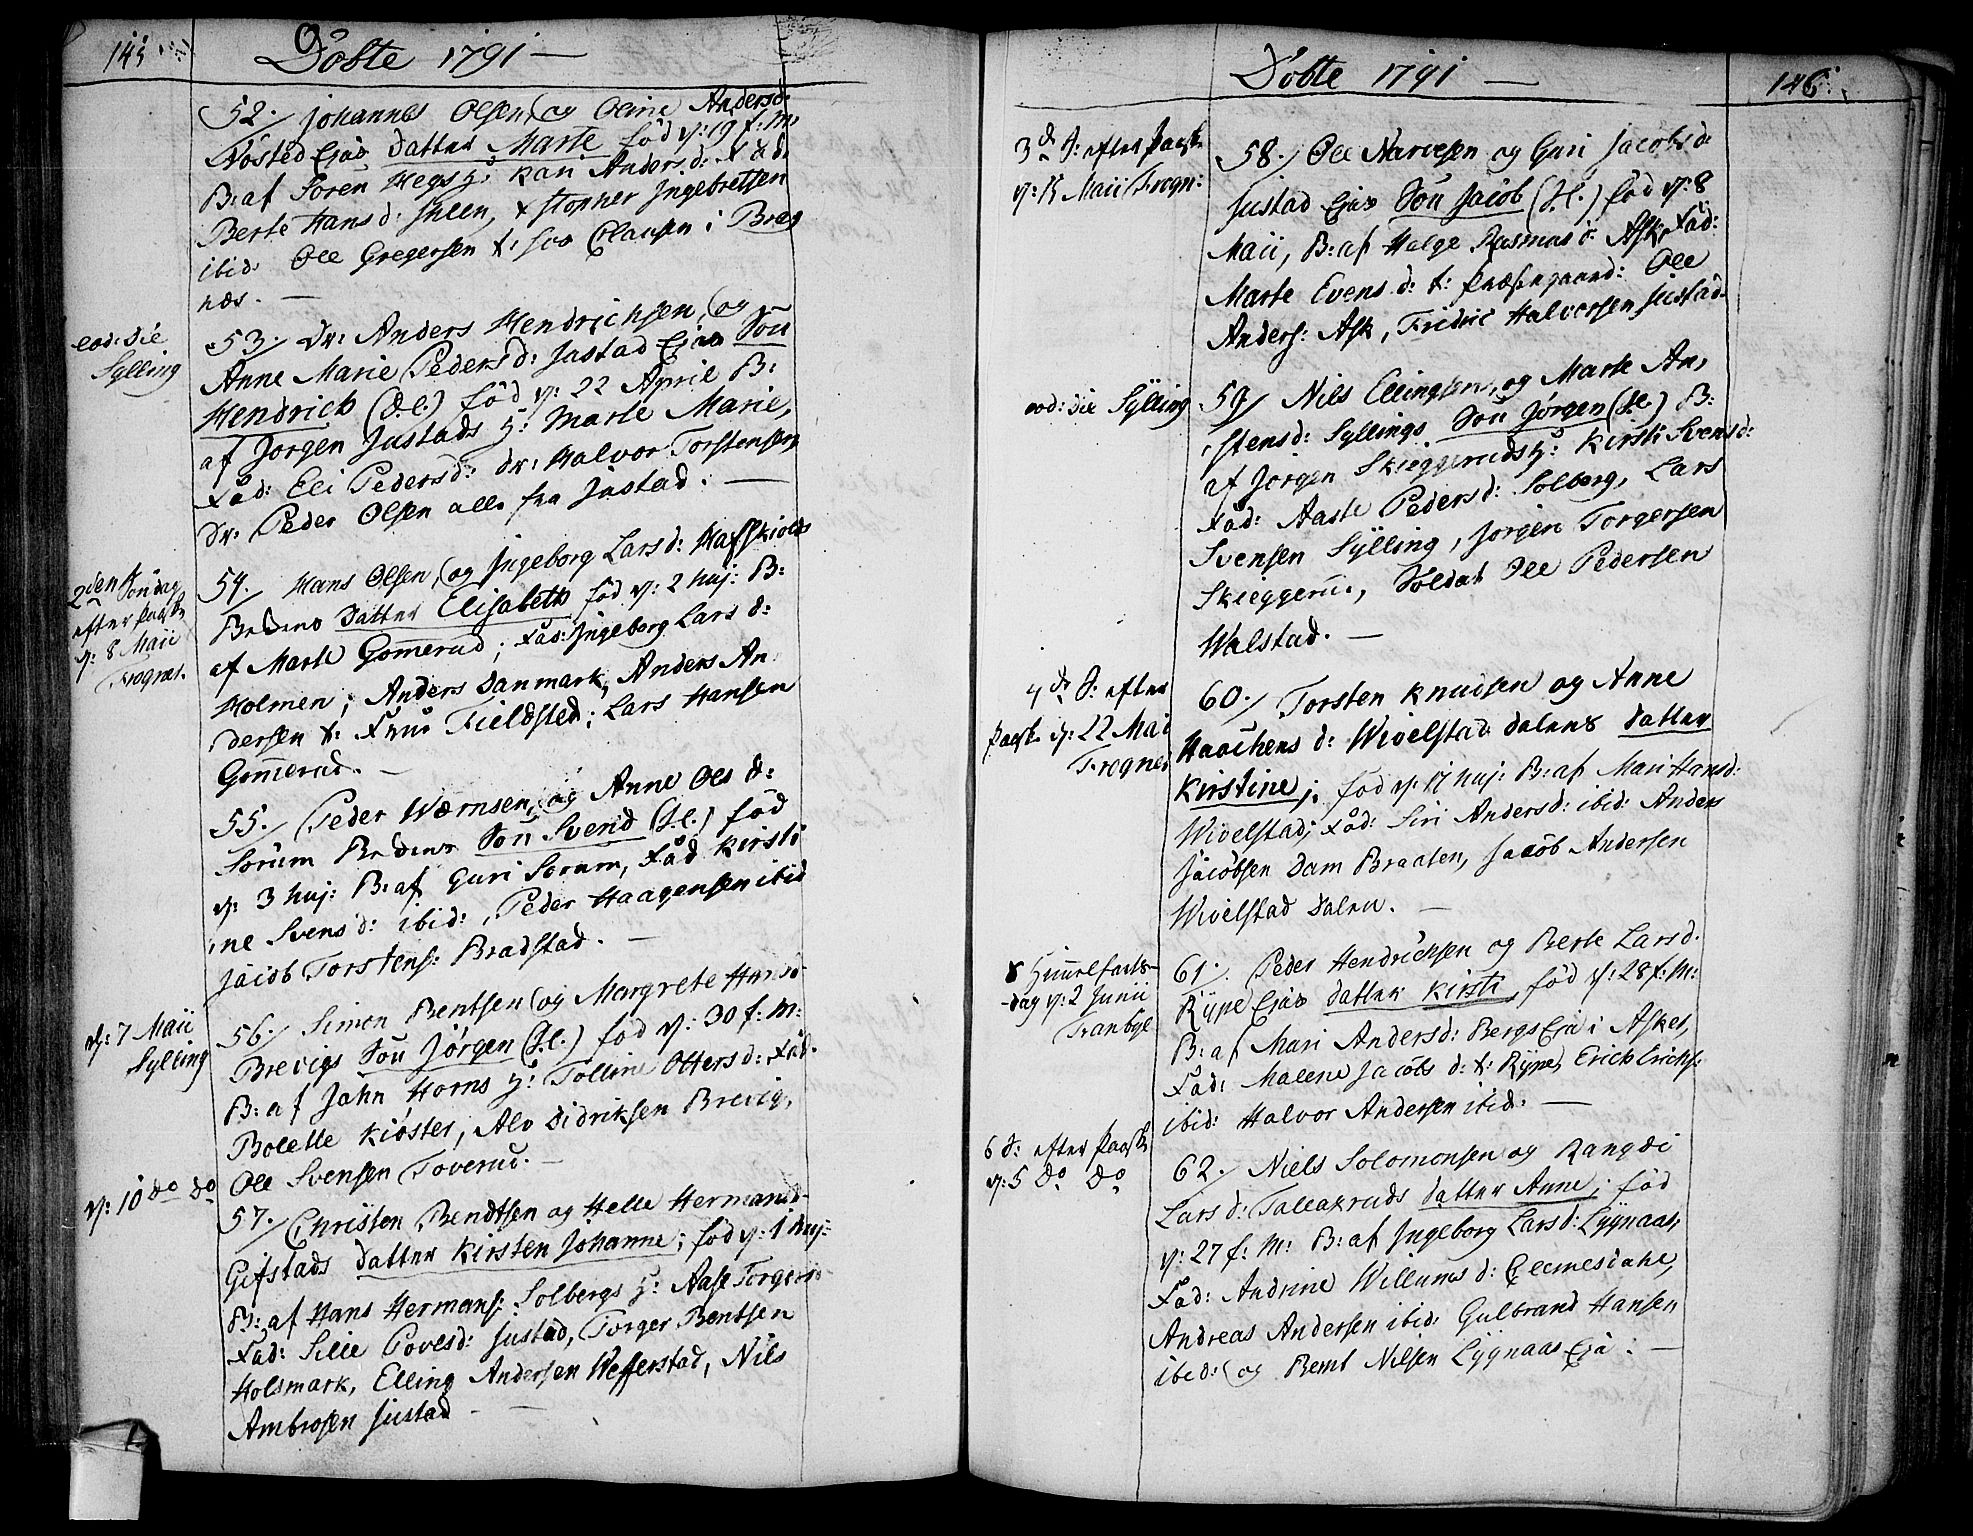 145
Döbte 1791 —
52./ Johannes Olsen, og Oline Andersd:
Nösted Ejes Datter Marte föd d: 19 f: M:
B: af Sören Hegs H: Kari Andersd: Fad:
Berte Hansd: Sneen, Stopner Ingebretsen
ibid: Ole Gregersen t: hos Clausen i Brag
næs. —
eod: die
Sylling
53/ Dr: Anders Hendrichsen, og
Anne Marie Pedersd: Justad Ejes Sön
Hendrich (Jl.) föd d: 22 April B:
af Jörgen Justads H: Marte Marie,
Fad: Eli Pedersd: Dr: Halvor Torstensen
Dr: Peder Olsen alle fra Justad. —
2den Söndag
efter Paaske
d: 8 Maii
Frogner.
54/ Hans Olsen, og Ingeborg Larsd: Hafskiolds
Bedens Datter Elisabeth föd d: 2 huj: B:
af Marte Gomerud; Fad: Ingeborg Larsd:
Holmen; Anders Danmark, Anders An
dersen t: Knud Fieldsted; Lars Hansen
Gomerud. —
55./ Peder Wærnsen, og Anne Olsd:
Sörum Bedens Sön Svend (Jl.) föd
d: 3 huj: B: af Guri Sorum, Fad Kirsti
ne Svensd: ibid:, Peder Haagensen ibid
Jacob Torstens: Bradstad. —
d: 7 Maii
Sylling
56/ Simon Bentsen og Margrete Hansd
Brevigs Sön Jörgen (Jl.) föd d: 30 f: M:
B: af Jahn Horns H: Tolline Ottersd: Fad:
Bolette Kiöster, Alv Didriksen Brevig,
Ole Svensen Toverud. —
d: 10 do do
57./ Christen Bendtsen og Helle Hermansd
Gifstads Datter Kirsten Johanne; föd d: 1 huj:
B: af Hans Hermans: Solbergs H: Aase Torgers
Fad: Silie Povesd: Justad, Torger Bentsen
Holsmark, Elling Andersen Wefferstad, Nils
Ambrosen Justad —
Döbte 1791 —
146.
3d S: efter Paaske
d: 15 Maii Frogn:
58./ Ole Narvesen og Guri Jacobsd
Justad Ejes Sön Jacob (Jl.) föd d: 8
Maii, B: af Helge Rasmusd: Ask, Fad:
Marte Evensd: t: Præstegaard: Ole
Anders: Ask, Fridric Halvorsen Justad.
eod: die Sylling
59/ Nils Ellingsen, og Marte An,
stensd: Syllings Sön Jörgen (Jl.) B:
af Jörgen Skieggeruds H: Kirsti Svensd:
Fad: Aaste Pedersd: Solberg, Lars
Svensen Sylling, Jörgen Torgersen
Skieggerud, Soldat Ole Pedersen
Walstad. —
4de S: efter
Paask: d: 22 Mai
Frogner
60./ Torsten Knudsen og Anne
Haachensd: Wivelstad Dalens Datter
Kirstine; föd d: 17 huj: B: af Mari Hansd:
Wivelstad; Fad: Siri Andersd: ibid: Anders
Jacobsen Dam Braaten, Jacob Andersen
Wivelstad Dalen. —
Himmelfarts-
dag d: 2 Junii
Tranbye
61./ Peder Hendrichsen og Berte Larsd.
Rÿpe Ejes Datter Kirsti, föd d: 28 f: M:
B: af Mari Andersd: Bergs Eje i Asker,
Fad: Malene Jacobsd: t: Rÿpe, Erich Erichs:
ibid: Halvor Andersen ibid. —
6 S: efter Paask
d: 5 do do
62./ Niels Solomonsen og Rangdi
Larsd: Talleakruds Datter Anne; föd
d: 27 f: M: B: af Ingeborg Larsd: Lÿgnaas,
Fad: Andrine Willumsd: Glemesdahl,
Andreas Andersen ibid: Gulbrand Hansen
ibid: og Bernt Nilsen Lÿgnaas Eje. —